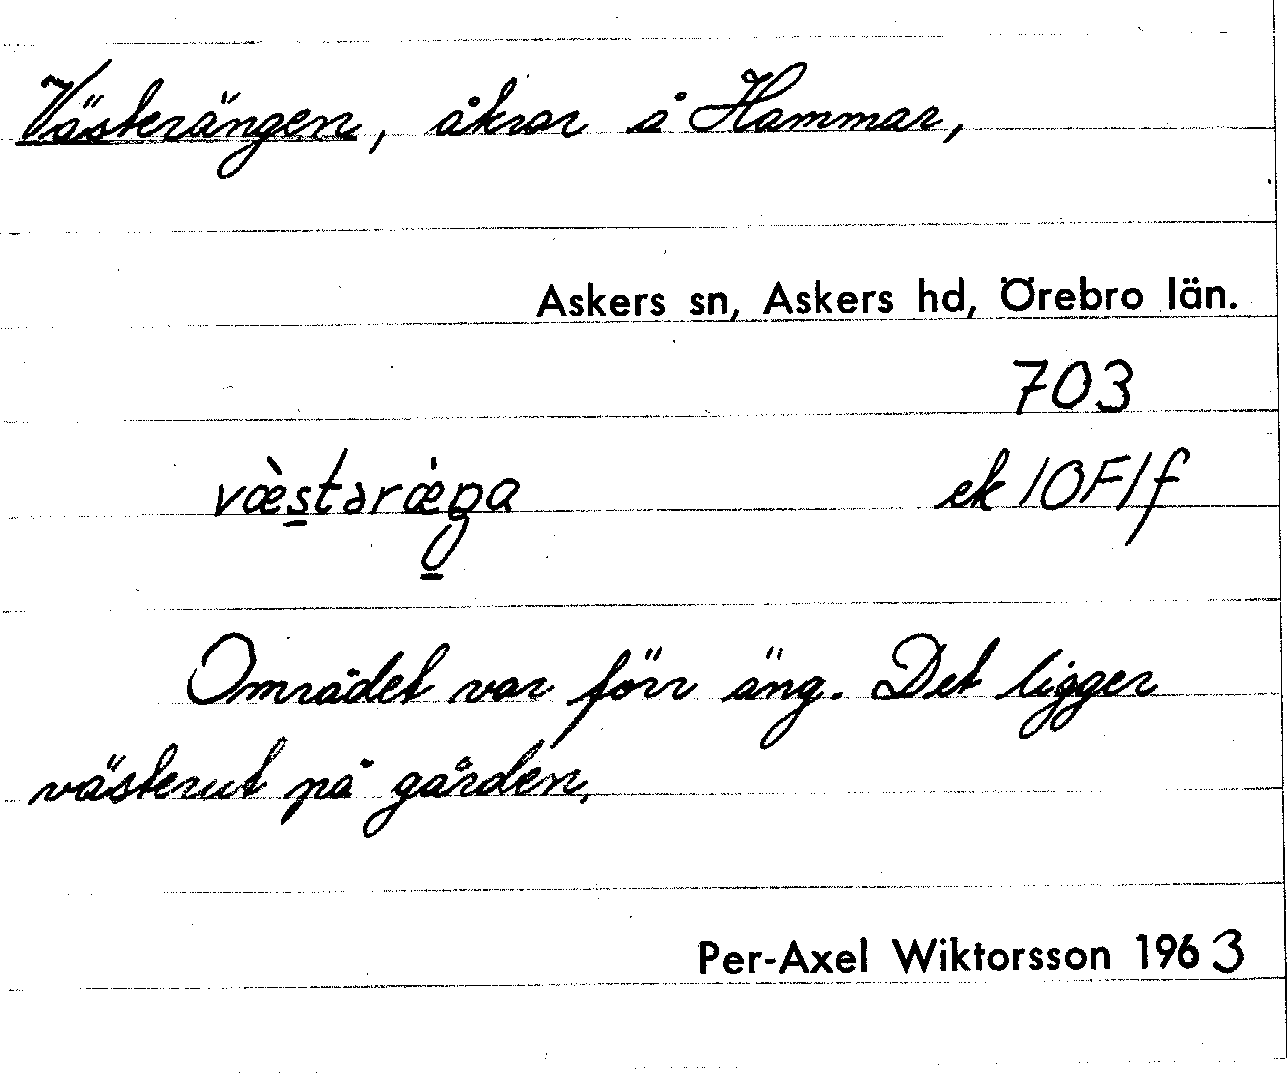 Västerängen, åkrar å Hammar,
Askers sn, Askers hd, Örebro län.
703
væ̀stəræ̀ŋa ek 10F1f
Området var förr äng. Det ligger
västerut på gården.
Per-Axel Wiktorsson 1963